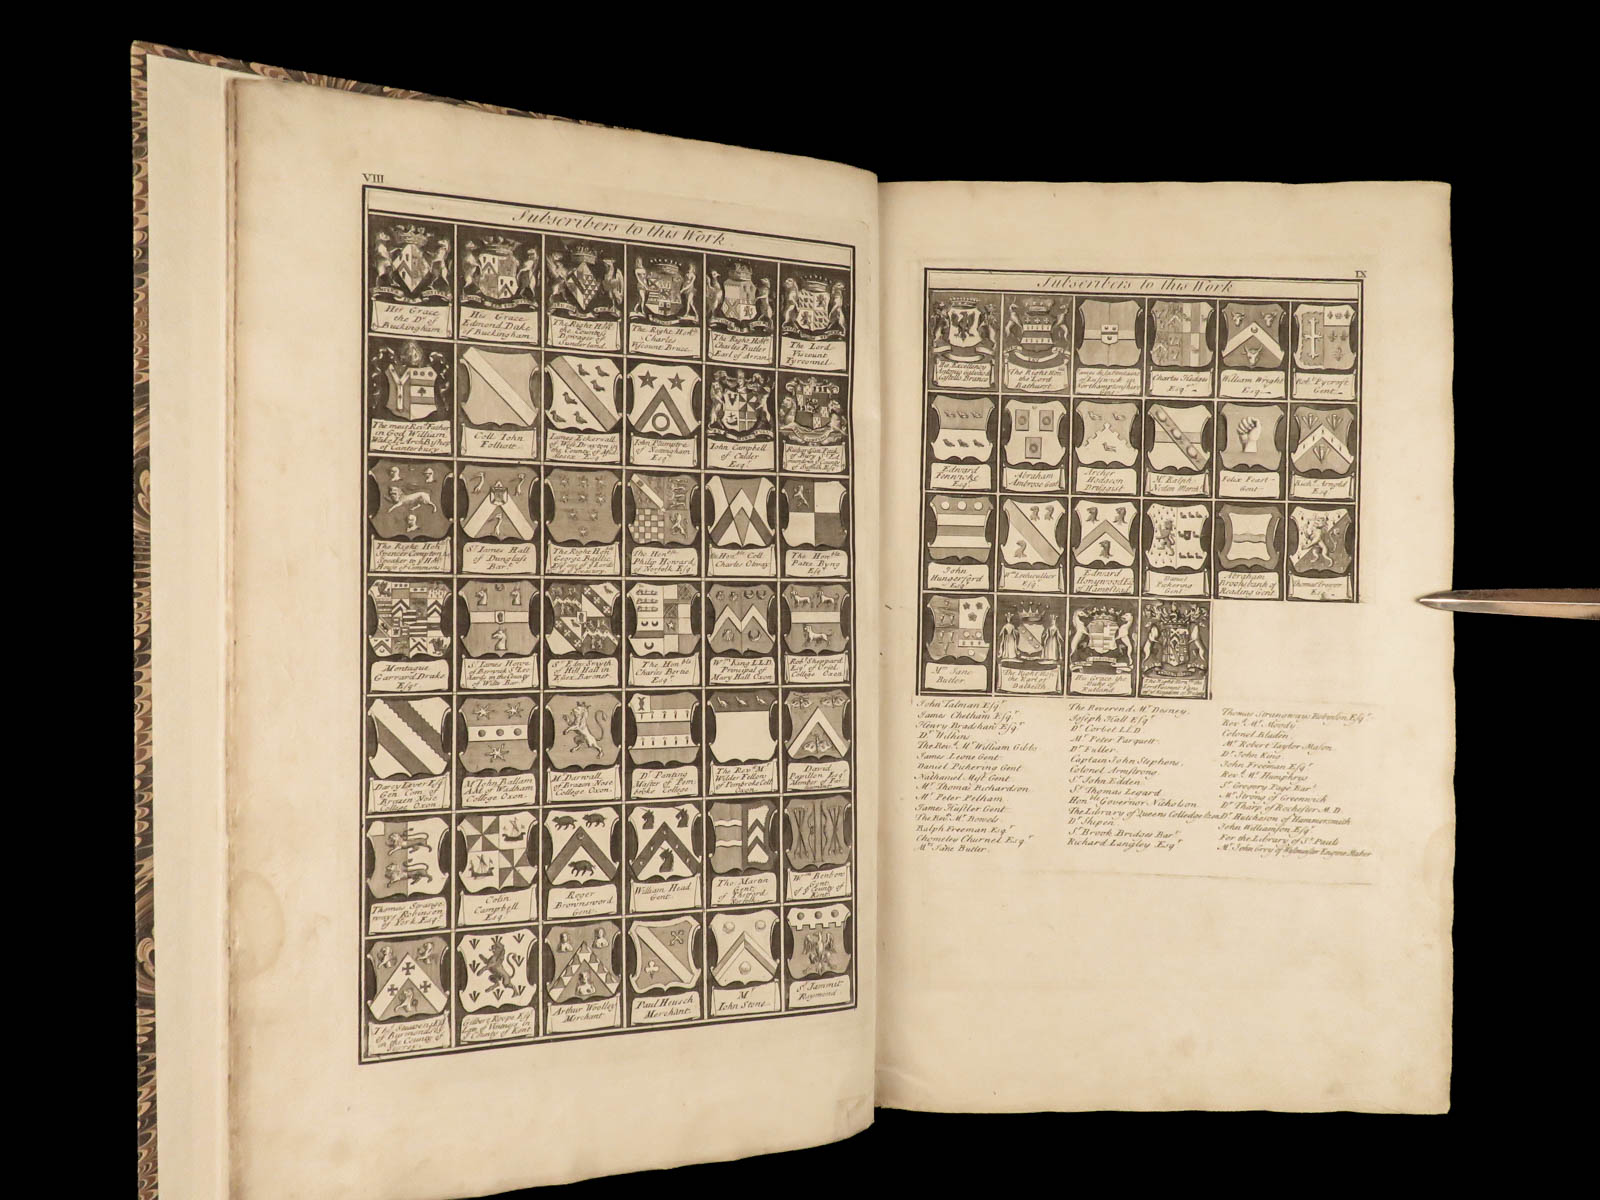 VIII
Subscribers to this Work.
Her Grace
the Ds. of
Buckingham.
His Grace
Edmond Duke
of Buckingham.
The Right Honble
the Countess
Dowager of
Sunderland.
The Right Honble
Charles
Viscount Bruce.
The Right Honble
Charles Butler
Earl of Arran.
The Lord
Viscount
Tyrconnel.
The most Revd. Father
in God William
Wake Ld. ArchBishop
of Canterbury.
Coll. John
Folliott.
James Eckersall
of West Drayton in
the County of
Esqr.
John Plumptre
of Nottingham
Esqr.
John Campbell
of Calder
Esqr.
of Bury St. Ed.
of Suffolk Esqr.
The Right Honble
Spencer Compton
Speaker to ye Honble
House of Commons.
Sr. James Hall
of Dunglass
Bart.
The Right Honble
George Baillie
Esqr. one of ye Lords
of ye Treasury.
The Honble
Philip Howard
of Norfolk Esq.
The Honble Coll.
Charles Otway.
The Honble
Patee Byng
Esqr.
Montague
Garrard Drake
Esqr.
Sr. James Howe
of Berwick St. Leo
nards in the County
of Wilts Bart.
Sr. Edwd. Smyth
of Hill Hall in
Essex Baronet.
The Honble
Charles Bertie
Esqr.
Wm. King LL.D.
Principal of
Mary Hall Oxon
Robt. Sheppard
Esqr. of Oriel
College Oxon
Darcy Lever Esqr.
Gen. Com. of
Brazen Nose
College Oxon
Mr. John Ballam
A.M. of Wadham
College Oxon
Mr. Darwall
of Brazen Nose
College Oxon.
Dr. Panting
Master of Pem:
broke College
The Revd. Mr.
Wilder Fellow
of Pembroke Coll.
Oxon
David
Papillon Esqr.
Member of
Parliament
Thomas Strange
ways Robinson
of York Esqr.
Colin
Campbell
Esqr.
Roger
Brownsword
Gent.
William Head
Gent.
Tho. Martin
Gent.
of Thetford
Norfolk
Wm. Benbow
Gent.
of ye County of
Kent.
Thos.
in the County of
Surrey
Gilbert Roope Esqr.
County of Kent.
Arthur Woolley
Merchant
Paul Heusch
Merchant.
Mr.
John Stone.
Sr. Jemmit
Raymond.
IX
Subscribers to this Work
His Excellency
Castello Branco
The Right Hon.
the Lord
Bathurst
Northamptonshire
Charles Hedges
Esqr.
William Wright
Esqr.
Robt. Pycroft
Gent.
Edward
Fenwicke
Esqr.
Abraham
Ambrose Gent
Archer
Hodgson
Druggist
Mr. Ralph
Noden Mercht.
Felix Feast
Gent
Richd. Arnold
Esqr.
John
Hungerford
Esqr.
Wm. Lethieullier
Esqr.
Edward
Honywood Esqr.
of Hampstead
Daniel
Pickering
Gent
Abraham
Brookbank of
Reading Gent
Thomas Trevor
Esqr.
Mrs. Jane
Butler.
The Right Hon.
the Earl of
Dalkeith
His Grace the
Duke of
Rutland
The Right Hon. the
John Talman Esqr.
James Chetham Esqr.
Henry Bradshaw Esqr.
Dr. Wilkins
The Revd. Mr. William Gibbs
James Leone Gent
Daniel Pickering Gent
Nathaniel Mist Gent
Mr. Thomas Richardson
Mr. Peter Pelham
James Hustler Gent
The Revd. Mr. Bowels
Ralph Freeman Esqr.
Chomeley Churnel Esqr.
Mrs. Jane Butler.
The Reverend Mr. Desney.
Joseph Hall Esqr.
Dr. Corbet LLD
Mr. Peter Parquott
Dr. Fuller.
Captain John Stephens.
Colonel Armstrong.
Sr. John Edden.
Sr. Thomas Legard
Honble Governor Nicholson.
The Library of Queens Colledge Oxon
Dr. Shipen
Sr. Brook Bridges Bart.
Richard Langley Esqr.
Thomas Strangways Robinson Esqr.
Revd. Mr. Moody
Colonel Bladen.
Mr. Robert Taylor Mason.
Dr. John King.
John Freeman Esqr.
Revd. Wm. Humphrys
Sr. Gregory Page Bart.
Mr. Strong of Greenwich
Dr. Tharp of Rochester M.D.
Dr. Hutchason of Hammersmith
John Williamson Esqr.
For the Library of St. Pauls
Mr. John Grey of Westminster Engine Maker